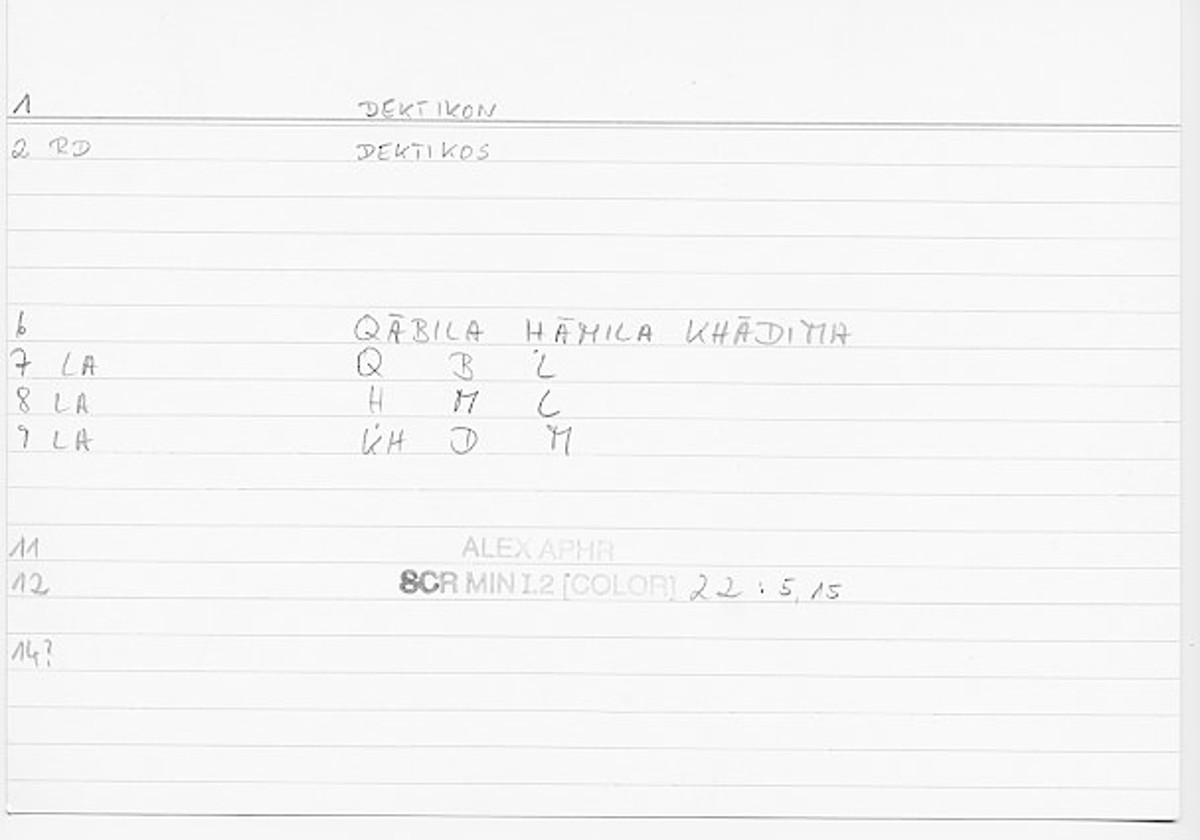 1 DEKTIKON
2 RD DEKTIKOS
6 QĀBILA HĀMILA KHĀDIMA
7 LA Q B L
8 LA H M L
9 LA KH D M
11 ALEX APHR
12 SCR MIN I.2 [COLOR] 22 : 5, 15
14?